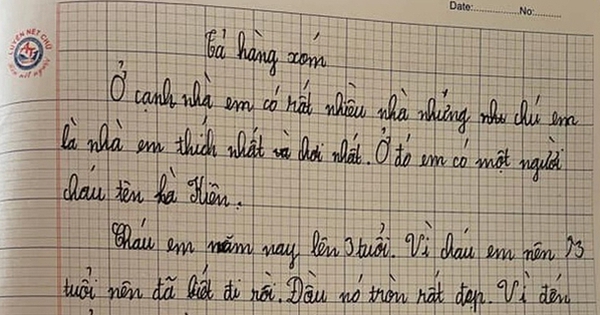 Date:.............No:........
LUYỆN NÉT CHỮ
Rèn nết người
Tả hàng xóm
Ở cạnh nhà em có rất nhiều nhà nhưng nhà chú em
là nhà em thích nhất và chơi nhất. Ở đó em có một người
cháu tên là Kiên.
Cháu em năm nay lên 3 tuổi. Vì cháu em nên 3
tuổi nên đã biết đi rồi. Đầu nó tròn rất đẹp. Vì đến